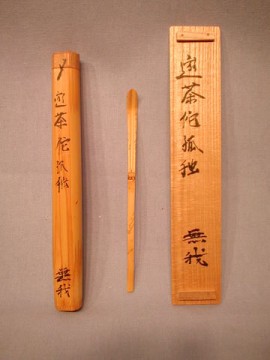 茶佗孤独
無我
茶佗孤独
無我